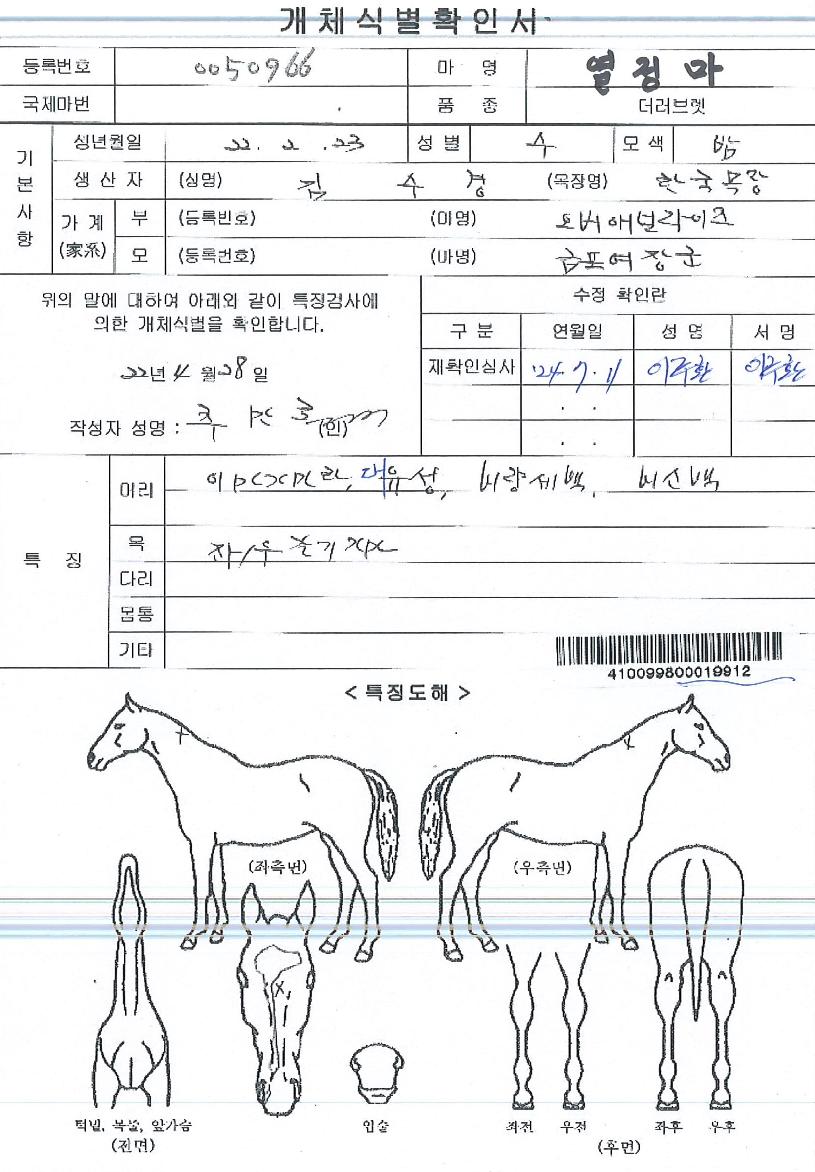 개체식별확인서
등록번호 0050966 마 명 열정마
국제마번 품 종 더러브렛
기본사항
생년월일 22. 2. 23 성별 수 모색 밤
생산자 (성명) 김 수 경 (목장명) 한국목장
가계 (家系) 부 (등록번호) (마명) 오버애널라이즈
모 (등록번호) (마명) 금포여장군
위의 말에 대하여 아래와 같이 특징검사에
의한 개체식별을 확인합니다.
22년 4월 28일
작성자 성명 : (인)
수정 확인란
구 분 연월일 성 명 서 명
재확인심사 '24. 7. 11 이주환 이주환
. .
. .
특 징
머리 대유성, 비량세백, 비신백
목 좌/우
다리
몸통
기타
410099800019912
< 특징도해 >
(좌측면) (우측면)
턱밑, 목줄, 앞가슴
(전면)
입술
좌전 우전 좌후 우후
(후면)